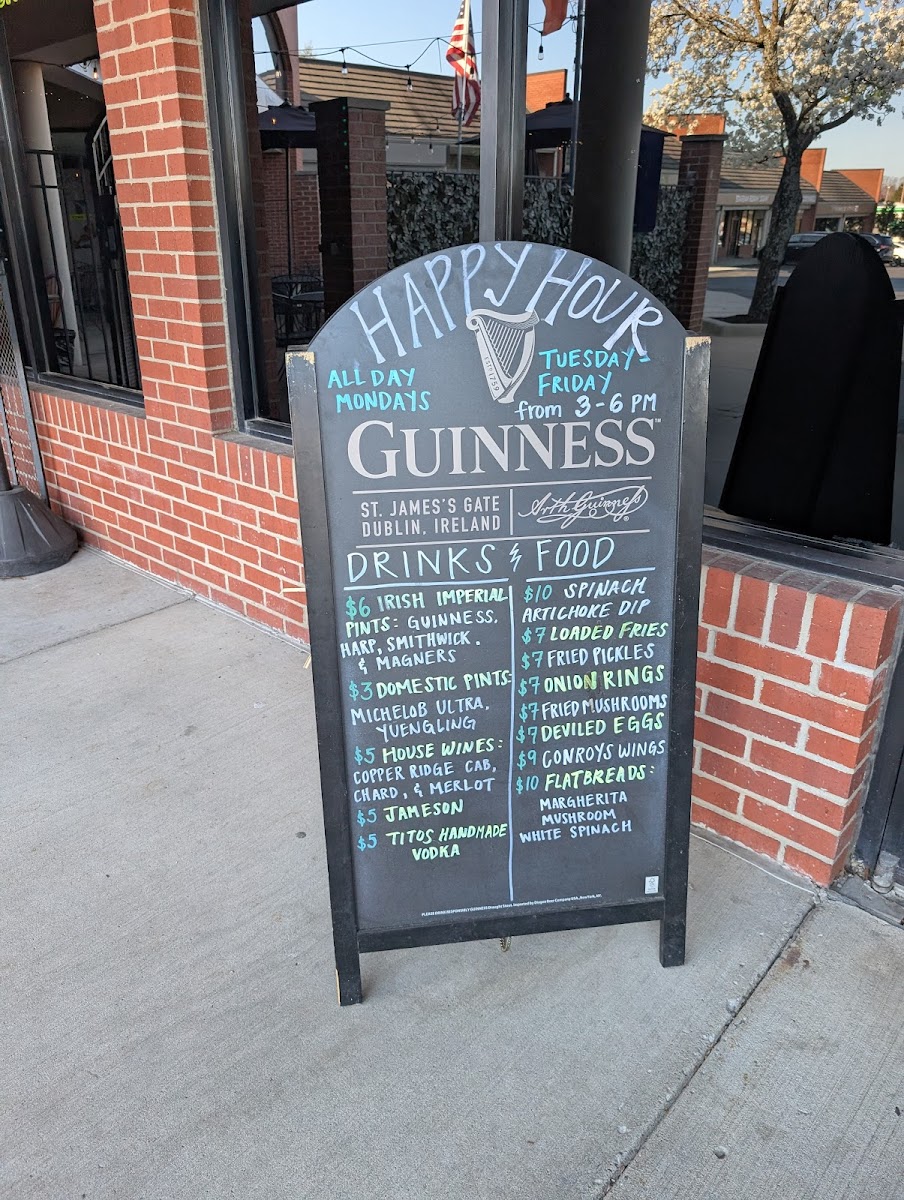 HAPPY HOUR
ALL DAY
MONDAYS
TUESDAY-
FRIDAY
from 3-6 PM
1759
GUINNESS™
ST. JAMES'S GATE
DUBLIN, IRELAND
Arth Guinness ®
DRINKS & FOOD
$6 IRISH IMPERIAL
PINTS: GUINNESS,
HARP, SMITHWICK.
& MAGNERS
$3 DOMESTIC PINTS:
MICHELOB ULTRA,
YUENGLING
$5 HOUSE WINES:
COPPER RIDGE CAB,
CHARD, & MERLOT
$5 JAMESON
$5 TITOS HANDMADE
VODKA
$10 SPINACH
ARTICHOKE DIP
$7 LOADED FRIES
$7 FRIED PICKLES
$7 ONION RINGS
$7 FRIED MUSHROOMS
$7 DEVILED EGGS
$9 CONROYS WINGS
$10 FLATBREADS:
MARGHERITA
MUSHROOM
WHITE SPINACH
PLEASE DRINK RESPONSIBLY